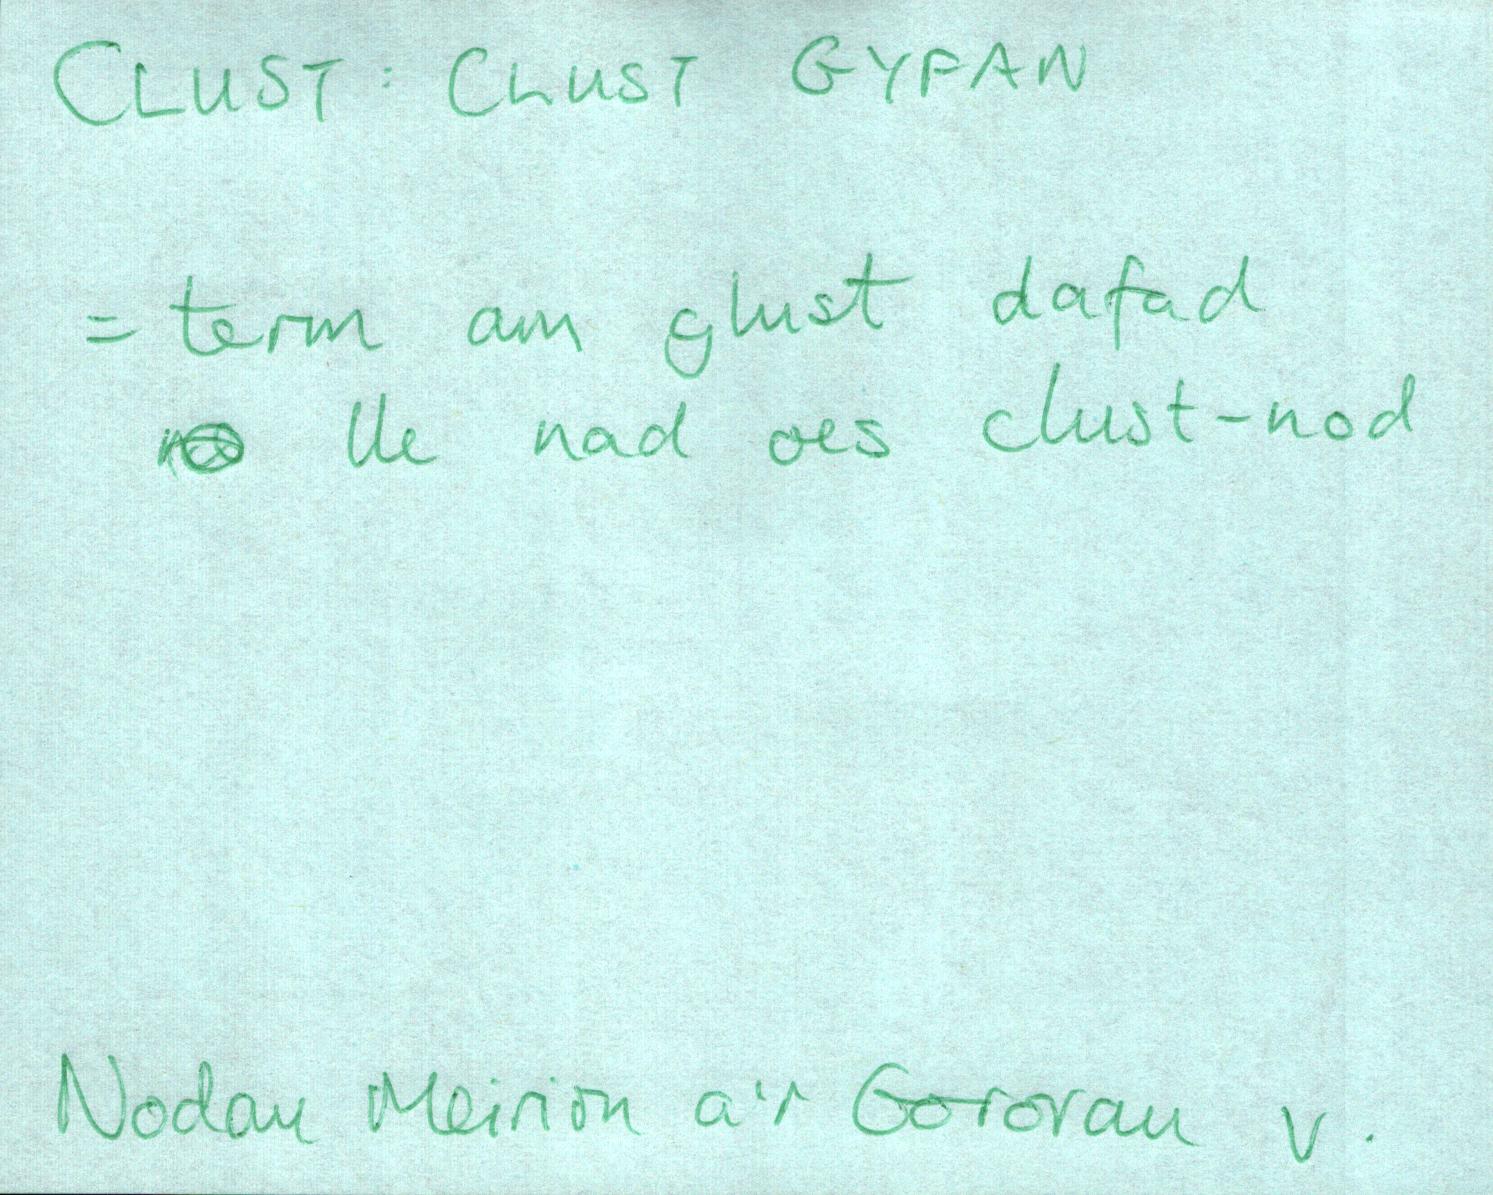 CLUST: CLUST GYFAN
= term am glust dafad
lle nad oes clust-nod
Nodau Meirion a'r Gororau v.